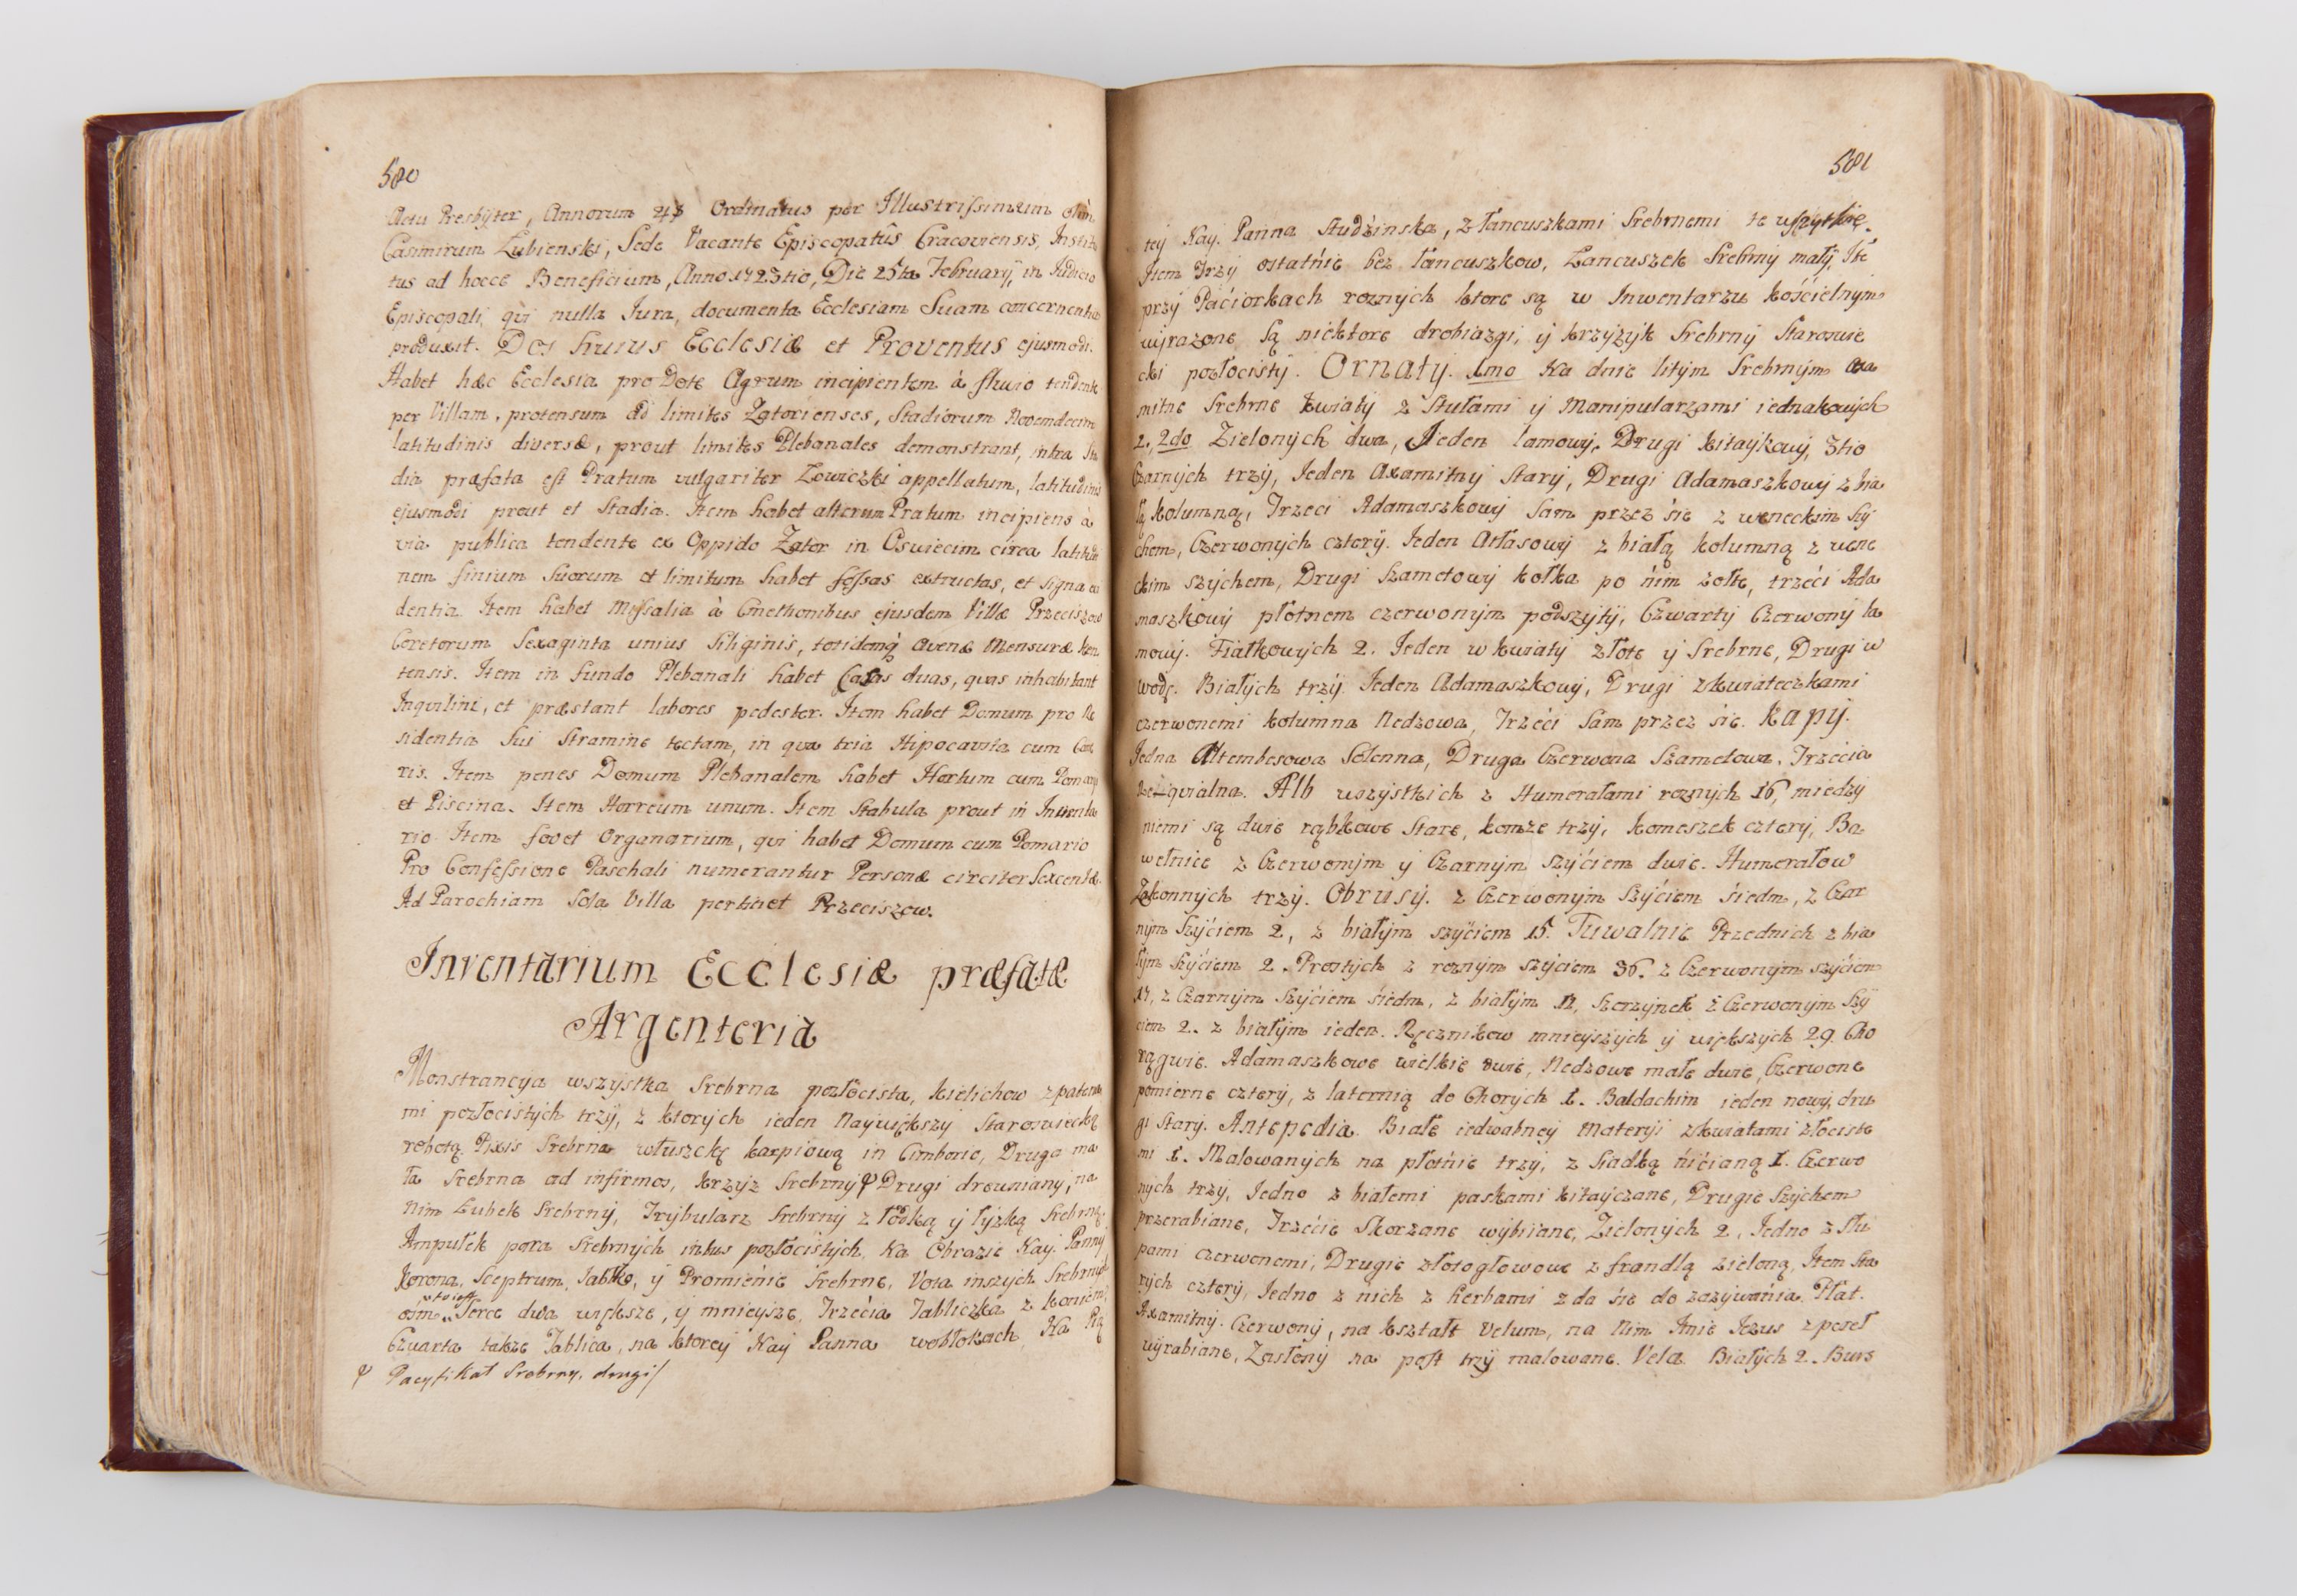 580
Actu Presbyter, Annorum 48 Ordinatus per Illustrissimum olim
Casimirum Łubienski, Sede Vacante Episcopatûs Cracoviensis, Institu
tus ad hocce Beneficium, Anno 1723tio, Die 25ta February, in Judicio
Episcopali, qui nulla Jura, documenta Ecclesiam Suam concernentia
produxit. Dos huius Ecclesiæ et Proventus ejusmodi.
Habet hæc Ecclesia pro Dote Agrum incipientem à fluvio tendente
per Villam, protensum ad limites Zatorienses, Stadiorum Novemdecim
latitudinis diversæ, prout limites Plebanales demonstrant, intra Sta
dia præfata est Pratum vulgariter Łowiczki appellatum, latitudinis
ejusmodi prout et Stadia. Item habet alterum Pratum incipiens à
via publica tendente ex Oppido Zator in Oswiecim circa latitudi
nem finium suorum et limitum habet fossas extructas, et signa evi
dentia. Item habet Missalia à Cmethonibus ejusdem Villæ Przeciszow
Coretorum Sexaginta unius Siliginis, totidemq avenæ Mensuræ Ken
tensis. Item in fundo Plebanali habet Casas duas, quas inhabitant
Inquilini, et præstant labores pedester. Item habet Domum pro Re
sidentia Sui Stramine tectam, in qua tria Hipocausta cum Came
ris. Item penes Domum Plebanalem habet Hortum cum Pomario
et Piscina. Item Horreum unum. Item Stabula prout in Inventa
rio. Item fovet Organarium, qui habet Domum cum Pomario
Pro Confessione Paschali numerantur Personæ circiter Sexcentæ.
Ad Parochiam Sola Villa pertinet Przeciszow.
Inventarium Ecclesiæ præfatæ
Argenteria
Monstrancya wszystka Srebrna pozłocista, kielichow z patena
mi pozłocistych trzy, z ktorych ieden Naywiększy Staroswiecką
robotą. Pixis Srebrna włuszckę karpiową in Cimborio, Druga ma
ła Srebrna ad infirmos, krzyz Srebrny Drugi drewniany, na
Nim Lubek Srebrny, Trybularz Srebrny z łodką y łyzką Srebrną.
Ampułek para Srebrnych intus pozłocistych. Na Obrazie Nay: Panny
Korona, Sceptrum, Jabłko, y Promienie Srebrne, Vota inszych Srebrnych
osm Serce dwa większe, y mnieysze, Trzecia Tabliczka z koniem
Czwarta także Tablica, na ktorey Nay Panna wobłokach, Na Pią
Pacyfikał Srebrny, drugi/
581
tey Nay: Panna Studzinska, z łancuszkami Srebrnemi te wszytkie.
Item Trzy ostatnie bez łancuszkow, Łancuszek Srebrny mały, Ite
przy Paciorkach roznych ktore są w Inwentarzu kościelnym
wyrazone. Są niektore drobiazgi, y krzyzyk Srebrny Staroswie
cki pozłocisty. Ornaty. 1mo Na dnie litym Srebrnym axa
mitne Srebrne kwiaty z Stułami y Manipularzami iednakowych
2, 2do Zielonych dwa, Jeden lamowy, Drugi kitaykowy, 3tio
Czarnych trzy, Jeden Axamitny Stary, Drugi Adamaszkowy z bia
łą kolumną, Trzeci Adamaszkowy Sam przez się z weneckim Szy
chem, Czerwonych cztery. Jeden Atłasowy z białą kolumną z wene
ckim szychem, Drugi Szametowy kołka po nim zołte, trzeci Ada
maszkowy płotnem czerwonym podszyty, Czwarty Czerwony la
mowy. Fiałkowych 2. Jeden w kwiaty złote y Srebrne, Drugi w
wodę. Białych trzy. Jeden Adamaszkowy, Drugi z kwiateczkami
czerwonemi kolumna Nedzowa, Trzeci Sam przez sie. Kapy.
Jedna Altembasowa Solenna, Druga Czerwona Szametowa, Trzecia
Requialna. Alb wszystkich z Humerałami roznych 16, miedzy
niemi są dwie rąbkowe Stare, komze trzy, komeszek cztery, Ba
wełnice z Czerwonym y Czarnym szyciem dwie. Humerałow
Zakonnych trzy. Obrusy. z Czerwonym Szyciem siedm, z Czar
nym Szyciem 2, z białym szyciem 15. Tuwalnie Przednich z bia
łym Szyciem 2. Prostych z roznym szyciem 36. z Czerwonym szyciem
17, z Czarnym Szyciem siedm, z białym 12, Skrzynek z Czerwonym Szy
ciem 2. z białym ieden. Ręcznikow mnieyszych y większych 29. Cho
rągwie. Adamaszkowe wielkie dwie, Nedzowe małe dwie, Czerwone
pomierne cztery, z laternią do Chorych 1. Baldachim ieden nowy, dru
gi Stary. Antepedia. Białe iedwabney Materyi z kwiatami złociste
mi 1. Malowanych na płotnie trzy, z Siadką nicianą 1. Czerwo
nych trzy, Jedno z białemi paskami kitayczane, Drugie Szychem
przerabiane, Trzecie Skorzane wybiiane, Zielonych 2, Jedno z Słu
pami czerwonemi, Drugie złotogłowowe z frandlą zieloną, Item Sta
rych cztery, Jedno z nich z herbami zda się do zazywania. Płat.
Axamitny. Czerwony, na kształt Velum, na Nim Imie Jezus z pereł
wyrabiane, Zasłony na post trzy malowane. Vela. Białych 2. Burs